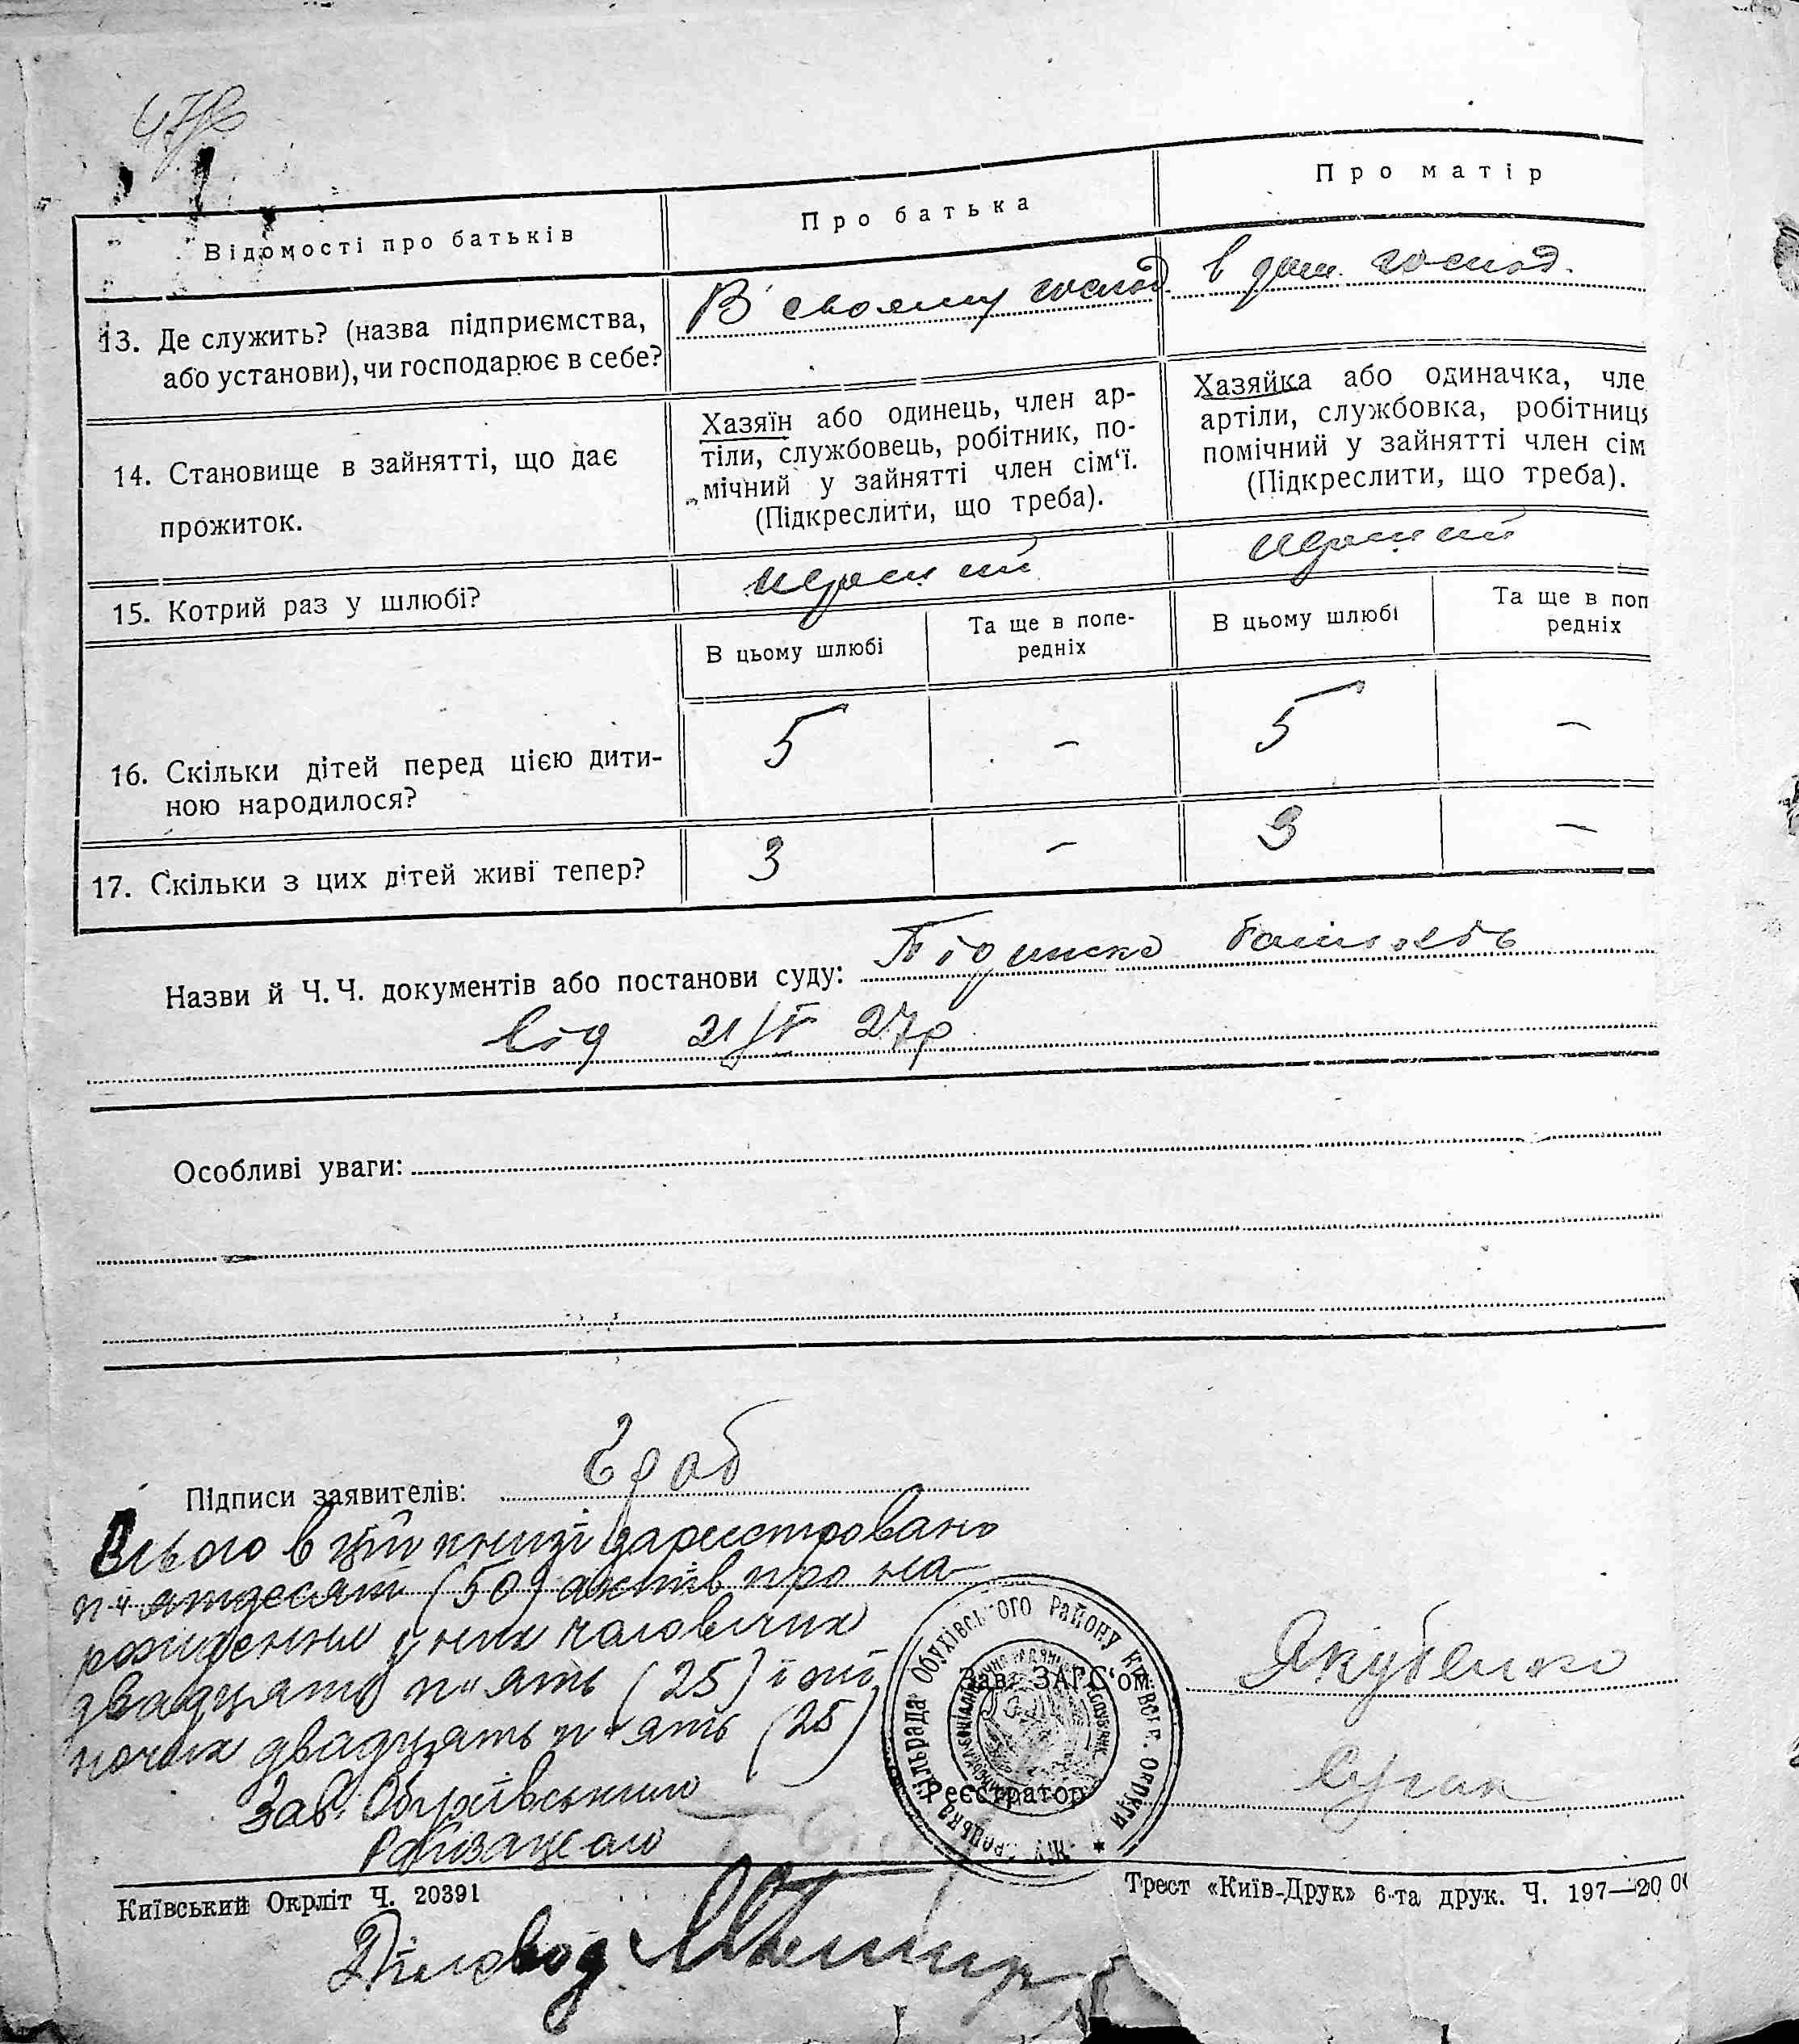 Відомості про батьків
Про батька
Про матір
13. Де служить? (назва підприємства,
або установи), чи господарює в себе?
В своєму господ.
в дом. господ.
14. Становище в зайнятті, що дає
прожиток.
Хазяїн або одинець, член ар-
тіли, службовець, робітник, по-
мічний у зайнятті член сім'ї.
(Підкреслити, що треба).
Хазяйка або одиначка, чле
артіли, службовка, робітниця
помічний у зайнятті член сім
(Підкреслити, що треба).
15. Котрий раз у шлюбі?
В цьому шлюбі
Та ще в попе-
редніх
В цьому шлюбі
Та ще в поп
редніх
16. Скільки дітей перед цією дити-
ною народилося?
5 - 5 -
17. Скільки з цих дітей живі тепер?
3 - 3 -
Назви й Ч. Ч. документів або постанови суду: Підписка
від 21/V 27р
Особливі уваги:
Підписи заявителів:
Всього в цій книзі зареєстровано
п'ятдесят (50) актів про на-
родження у них чоловічих
двадцять п'ять (25) і жі
ночих двадцять п'ять (25)
Зав. Обухівським
Райзагсом
Обухівського Району Київськ. Округи
Зав. ЗАГС'ом Якубенко
Реєстратор
Київський Окрліт Ч. 20391
Трест «Київ-Друк» 6-та друк. Ч. 197—20 00
Діловод